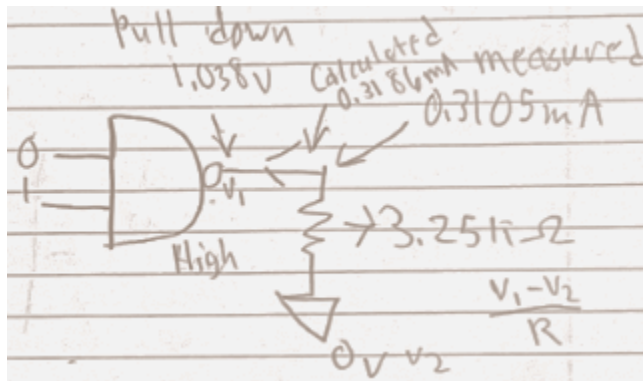 Pull down
1.038V
Calculated
0.3186mA
measured
0.3105mA
0
1
V1
High
→3.25kΩ
V1-V2
R
0V V2